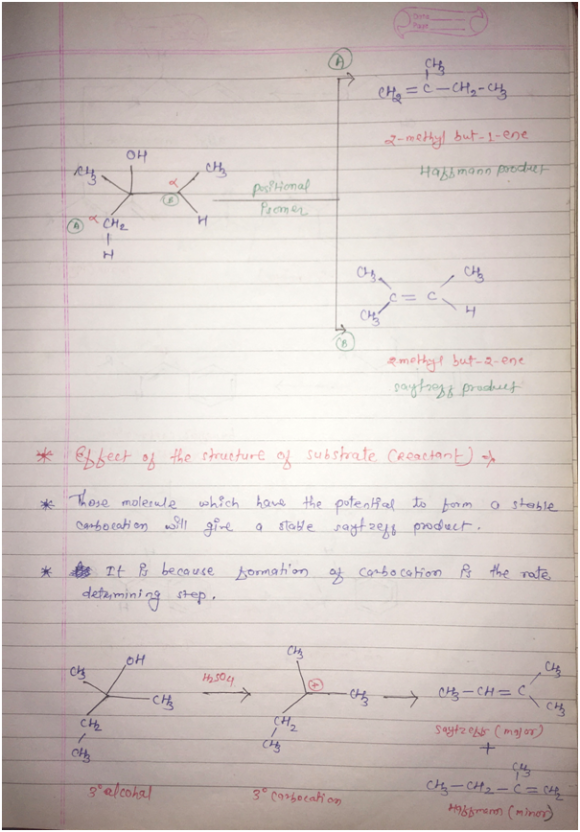 Date
Page
(A)
CH3
CH2 = C — CH2 – CH3
2-methyl but-1-ene
Haffmann product
OH
CH3
CH3
α
(B)
H
α
(A)
CH2
H
positional
isomer
CH3
CH3
C = C
CH3
H
(B)
2methyl but-2-ene
saytzeff product
* Effect of the structure of substrate (reactant) →
* Those molecule which have the potential to form a stable
carbocation will give a stable saytzeff product.
* It is because formation of carbocation is the rate
detemining step.
CH3
OH
CH3
CH2
CH3
3° alcohal
H2SO4
CH3
+
CH3
CH2
CH3
3° carbocation
CH3
CH3 – CH = C
CH3
saytzeff (major)
+
CH3
CH3 – CH2 – C = CH2
Haffmann (minor)